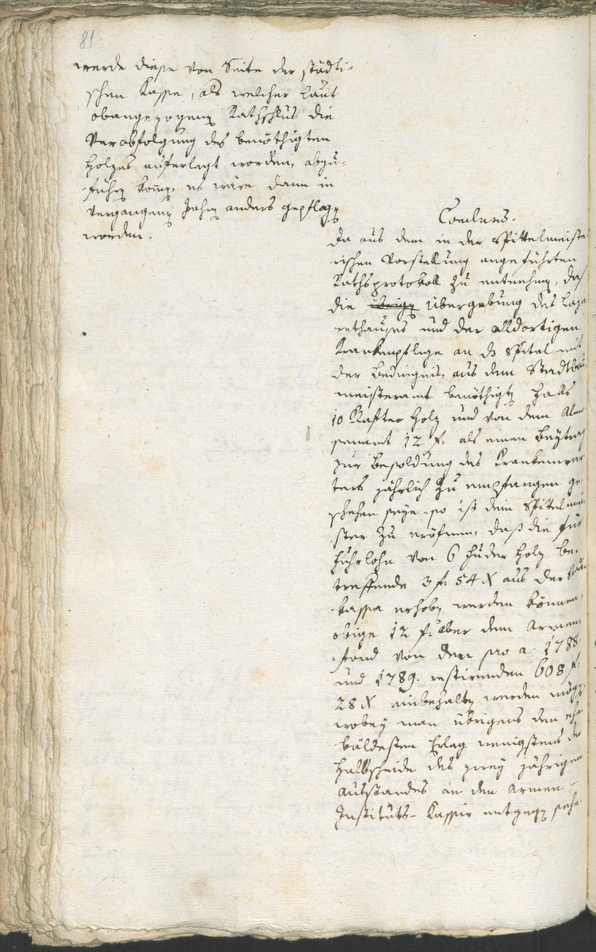 81
werde diese von Seite der städti-
schen Kasse, als welcher laut
obangezogenen Rathschlus die
Verabfolgung des benöthigten
Holzes auferlegt worden, abzu-
führen kom̄en, es wäre dann in
vergangenen Jahren anders gepflogen
worden.
Conclusus.
Da aus dem in der Spittelmeiste-
rischen Vorstellung angeführten
Rathsprotokoll zu entnehmen, daß
die übrige Übergebung des Laza-
rethauses und der alldortigen
Krankenpflege an das Spital mit
der Bedingniß, aus dem Stadtbau-
meisteramt benöthigten Falls
10 Klafter Holz und von dem Almo-
senamt 12 f. als einen Beytrag
zur Besoldung des Krankenwar-
ters jährlich zu empfangen ge-
schehen seye, so ist dem Spitelmei-
ster zu eröfnen, daß die für
Fuhrlohn von 6 Fuder Holz be-
treffende 3 f. 54 X aus der Stadt-
kasse erhoben werden können
obige 12 f. aber dem Armen
fond von den pro a. 1788
und 1789. restirenden 608 f.
28 X einbehalten werden mögen
wobey man übrigens den ehe-
bäldesten Erlag wenigstens der
Halbscheide des zwey jährigen
Ausstandes an den Armen-
Instituts-Kassier entgegen sehe